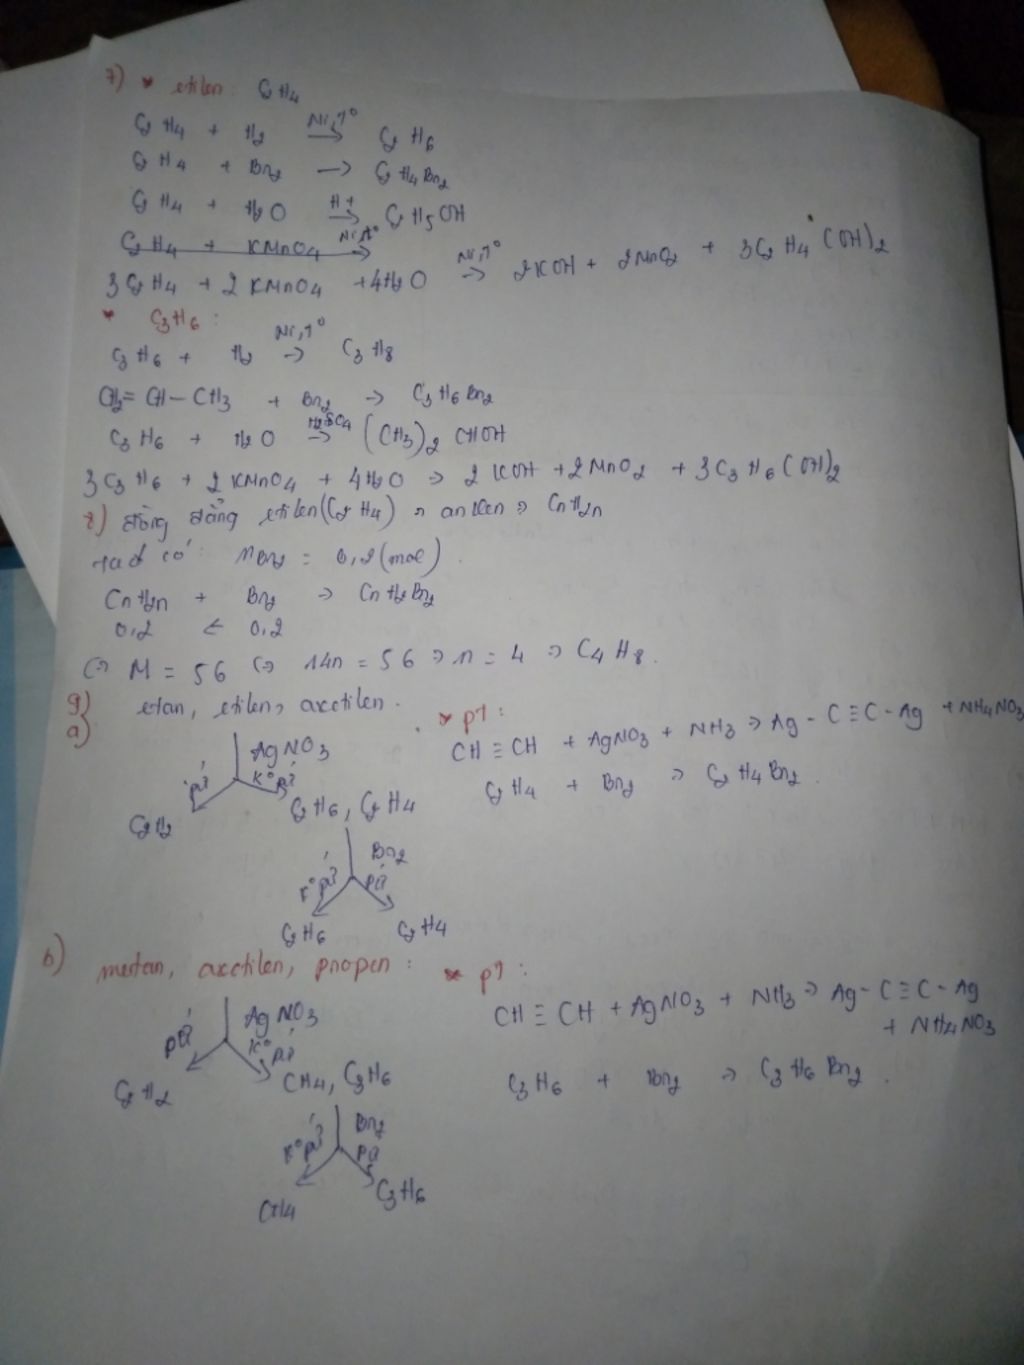 7) * etilen: C2H4
C2H4 + H2 Ni,t° → C2H6
C2H4 + Br2 → C2H4Br2
C2H4 + H2O H+ → C2H5OH
C2H4 + KMnO4 Ni,t° →
3C2H4 + 2KMnO4 + 4H2O Ni,t° → 2KOH + 2MnO2 + 3C2H4(OH)2
* C3H6:
C3H6 + H2 Ni,t° → C3H8
CH2=CH-CH3 + Br2 → C3H6Br2
C3H6 + H2O H2SO4 → (CH3)2CHOH
3C3H6 + 2KMnO4 + 4H2O → 2KOH + 2MnO2 + 3C3H6(OH)2
8) đồng đẳng etilen (C2H4) → anken → CnH2n
ta có: nBr2 = 0,2 (mol)
CnH2n + Br2 → CnH2nBr2
0,2 ← 0,2
(=> M = 56 (=> 14n = 56 => n = 4 => C4H8.
9) etan, etilen, axetilen.
a)
AgNO3
pứ
k° pứ
C2H2
C2H6, C2H4
Br2
k° pứ
pứ
C2H6
C2H4
* pt:
CH≡CH + AgNO3 + NH3 → Ag-C≡C-Ag + NH4NO3
C2H4 + Br2 → C2H4Br2.
b) metan, axetilen, propen:
AgNO3
pứ
k° pứ
C2H2
CH4, C3H6
Br2
k° pứ
pứ
CH4
C3H6
* pt:
CH≡CH + AgNO3 + NH3 → Ag-C≡C-Ag
+ NH4NO3
C3H6 + Br2 → C3H6Br2.